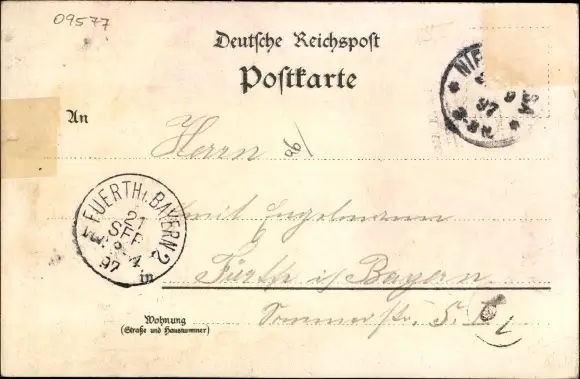 09577
Deutsche Reichspost
Postkarte
An
Herrn
Emil Engelmann
in Fürth i/Bayern
Sommerstr. 5. I
Wohnung
(Straße und Hausnummer)
FUERTH i. BAYERN 2
21
SEP
97
97